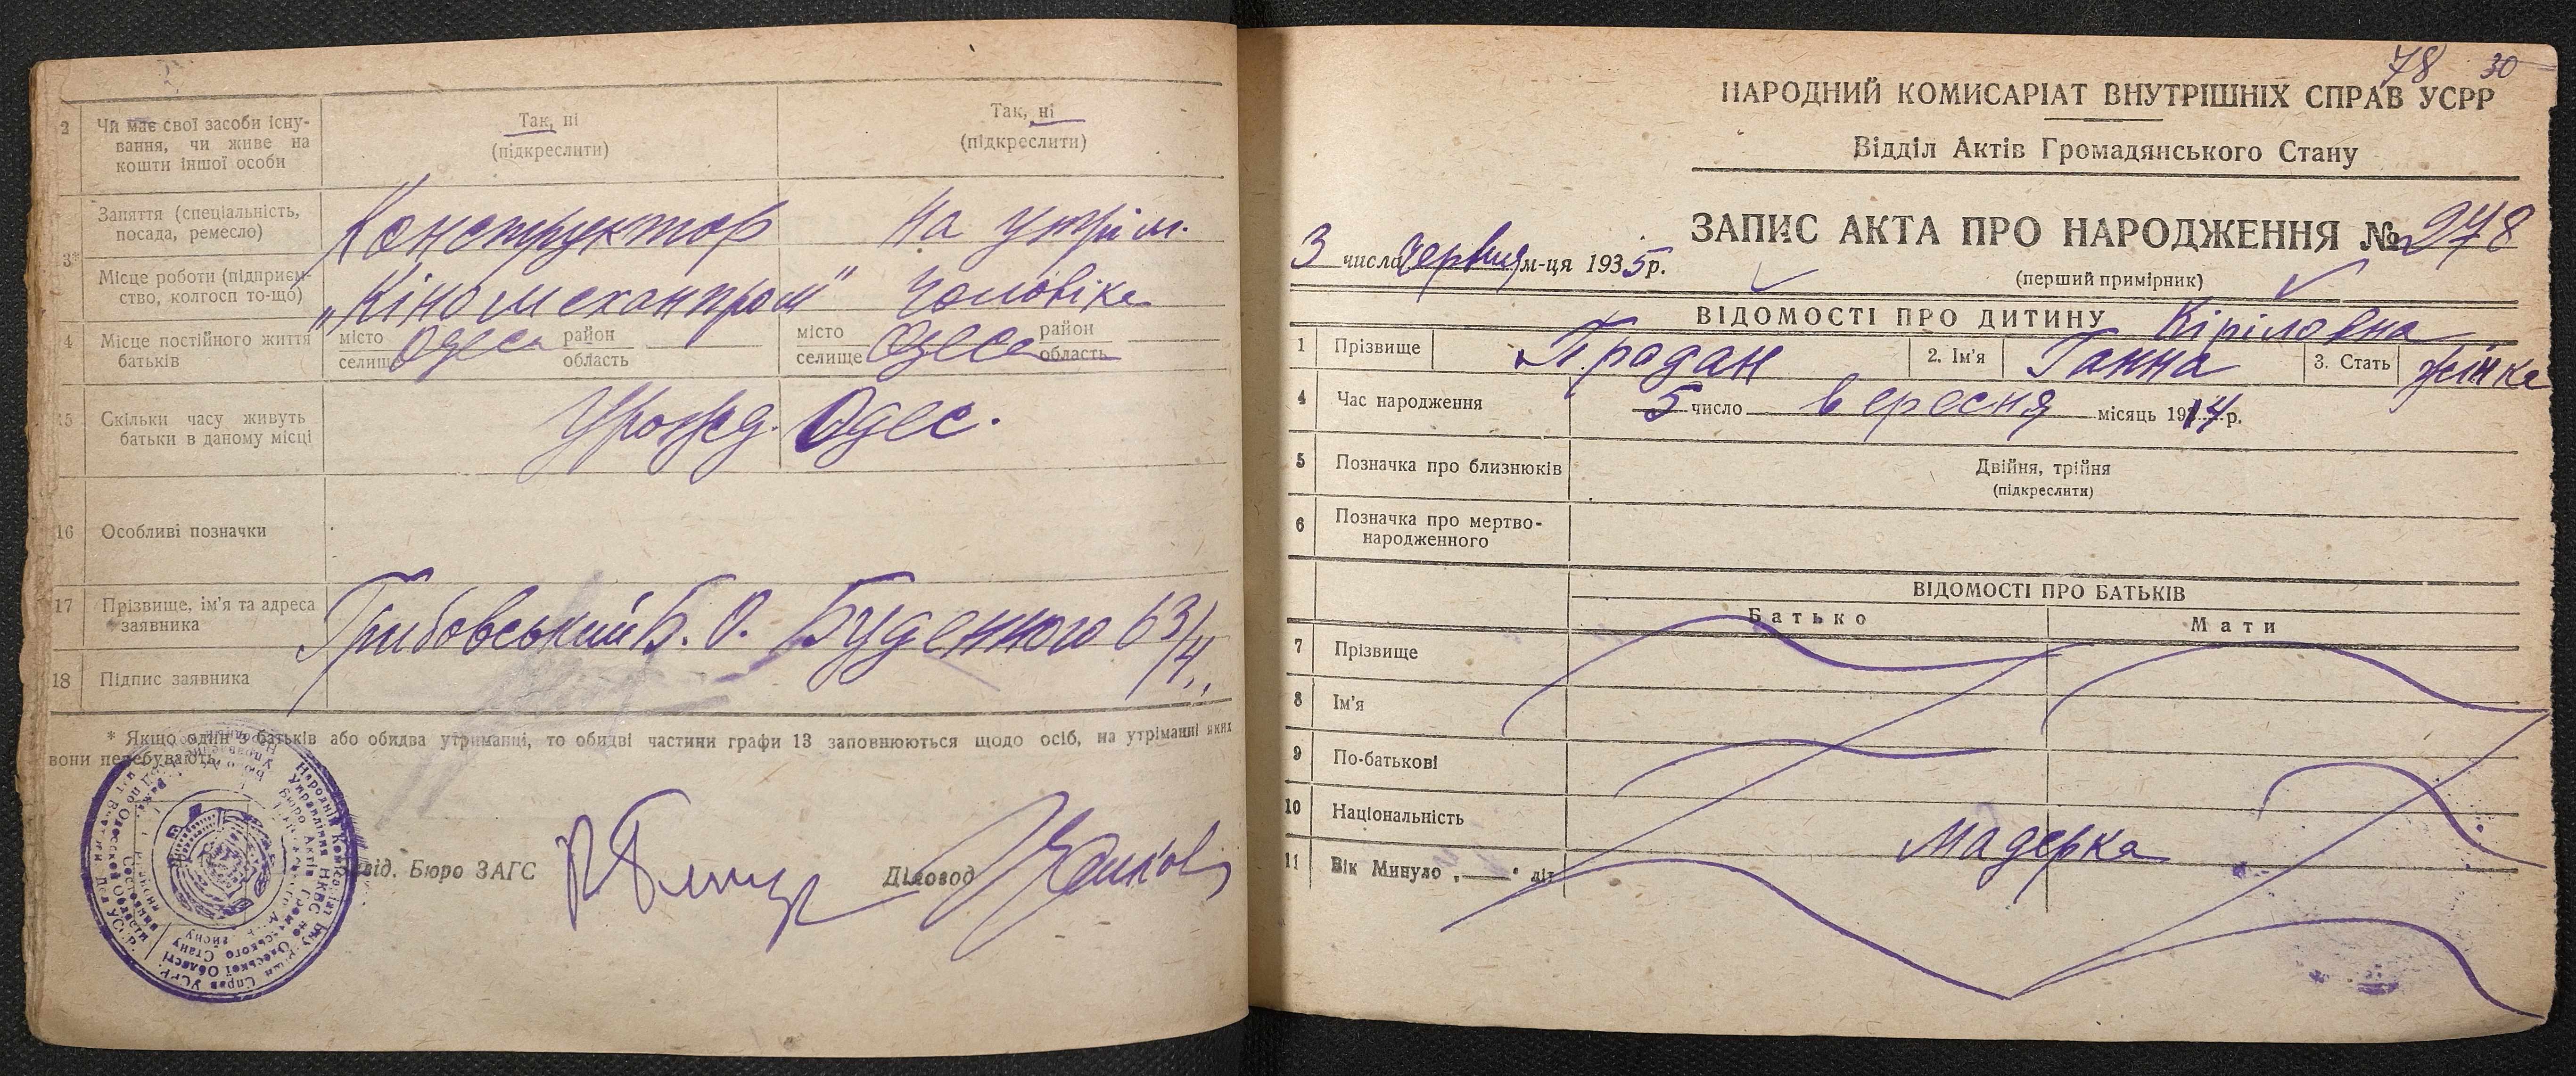 2 Чи має свої засоби існу-
вання, чи живе на
кошти іншої особи
Так, ні
(підкреслити)
Так, ні
(підкреслити)
3*
Заняття (спеціальність,
посада, ремесло)
Конструктор
На утрим.
Місце роботи (підприєм-
ство, колгосп то-що)
„Кіномеханпром"
чоловіка
4 Місце постійного життя
батьків
місто
селище
Одеса
район
область
місто
селище
Одеса
район
область
15 Скільки часу живуть
батьки в даному місці
Урожд. Одес.
16 Особливі позначки
17 Прізвище, ім'я та адреса
заявника
Грибовський Б. О. Буденного 63/4
18 Підпис заявника
* Якщо один з батьків або обидва утриманці, то обидві частини графи 13 заповнюються щодо осіб, на утриманні яких
вони перебувають.
Зав. Бюро ЗАГС
Діловод
78 30
НАРОДНИЙ КОМИСАРІАТ ВНУТРІШНІХ СПРАВ УСРР
Відділ Актів Громадянського Стану
ЗАПИС АКТА ПРО НАРОДЖЕННЯ № 278
3 числа Червня м-ця 1935 р.
(перший примірник)
ВІДОМОСТІ ПРО ДИТИНУ
Кіріловна
1 Прізвище Продан 2. Ім'я Ганна 3. Стать жінка
4 Час народження 5 число вересня місяць 1914 р.
5 Позначка про близнюків
Двійня, трійня
(підкреслити)
6 Позначка про мертво-
народженного
ВІДОМОСТІ ПРО БАТЬКІВ
Батько Мати
7 Прізвище
8 Ім'я
9 По-батькові
10 Національність
Мадерка
11 Вік Минуло „—" літ